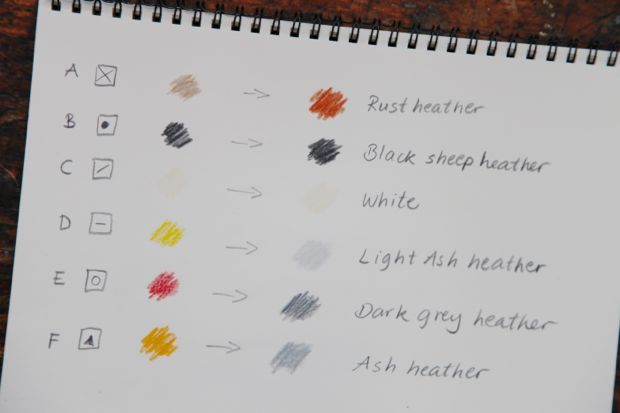 A → Rust heather
B → Black sheep heather
C → White
D → Light Ash heather
E → Dark grey heather
F → Ash heather